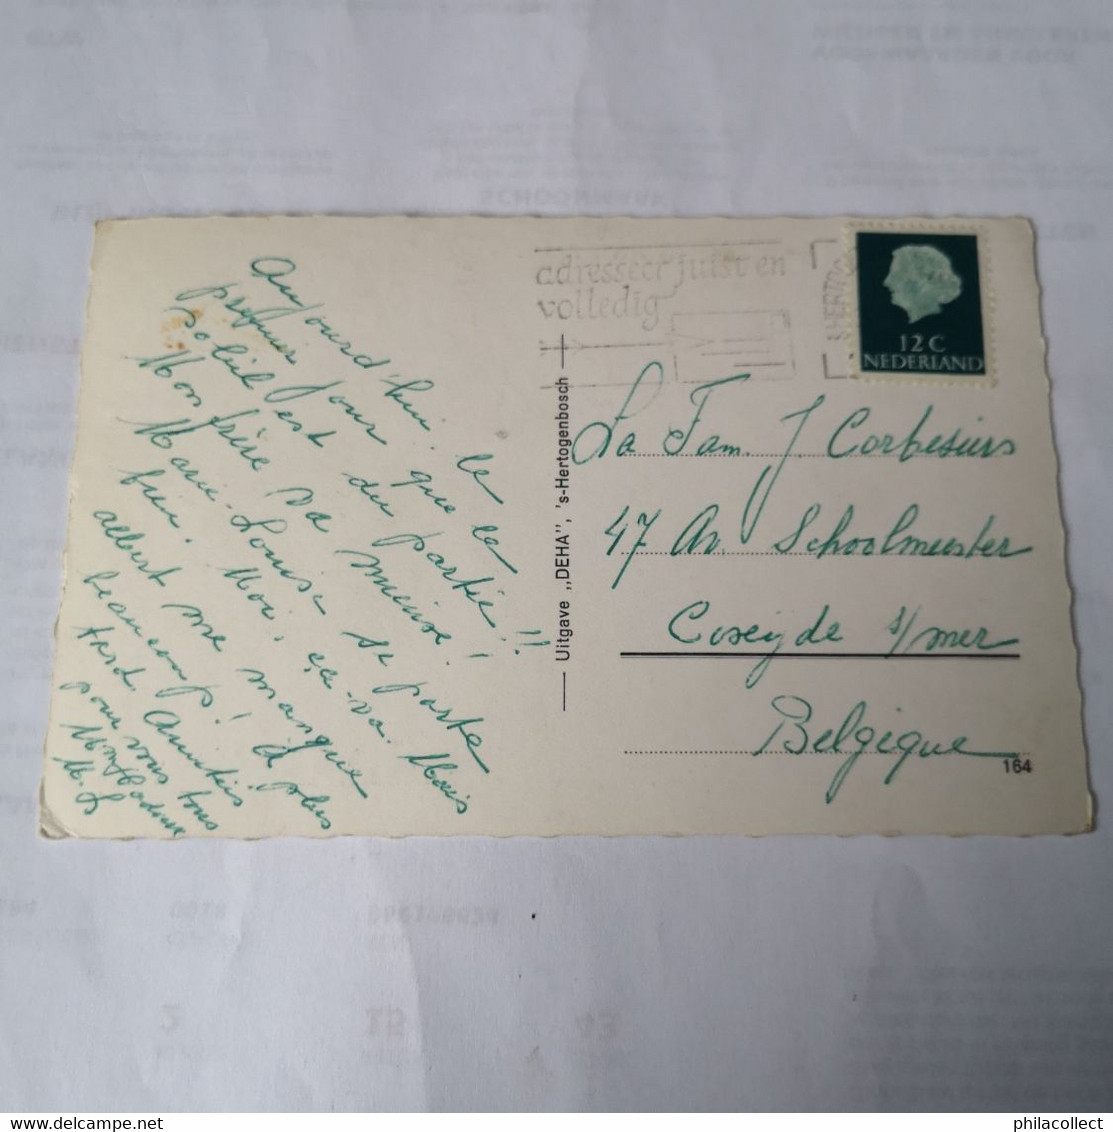 Aujourd'hui. le
premier jour que le
soleil est du partie!!
Mon frère va mieux!
Marie-Louise se porte
bien. Moi, ça-va. Mais
albert me manque
beaucoup! à plus
tard. Amitiés
pour vous tous
M. L
Uitgave „DEHA", 's-Hertogenbosch
adresseer juist en
volledig
12 C
NEDERLAND
La Fam. J. Corbesiers
47 Av. Schoolmeester
Coxeijde s/mer
Belgique
164
philacollect